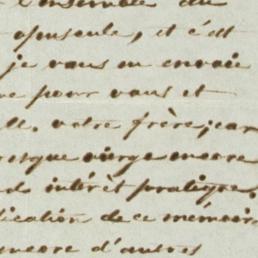 l'ensemble du
opuscule, et c'est
je vous en envoie
pour vous et
votre frère, car
presque vierge encore
intérêt pratique.
de ce mémoire
encore d'autres